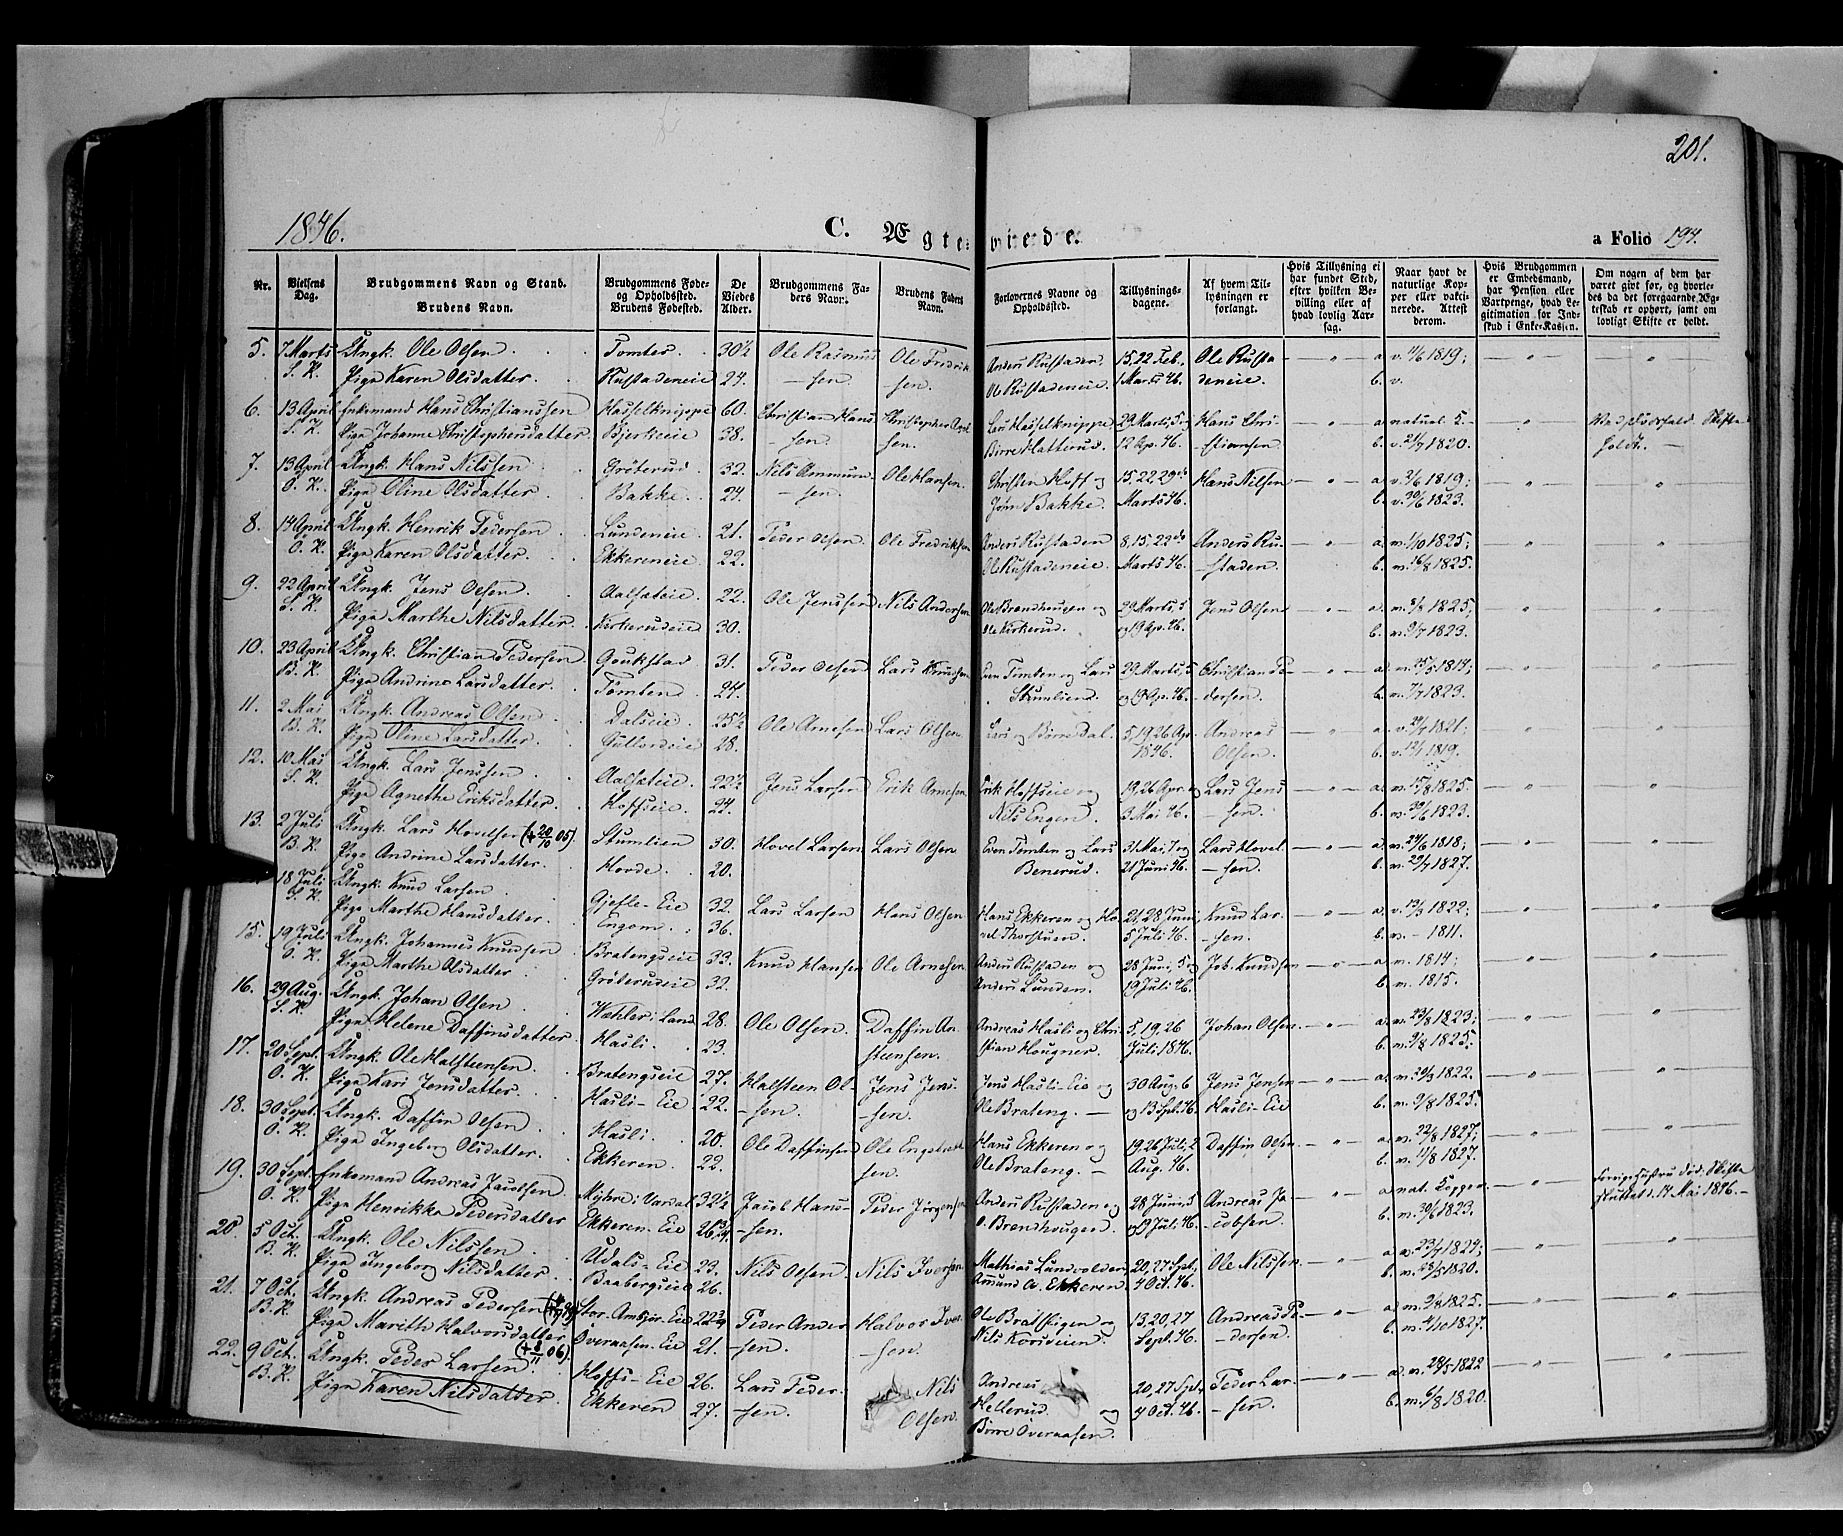 201.
1846.
C. Ægteviede.
a Folio 194.
Nr.
Vielsens Dag.
Brudgommens Navn og Stand.
Brudens Navn.
Brudgommens Føde- og Opholdssted.
Brudens Fødested.
De Viedes Alder.
Brudgommens Faders Navn.
Brudens Faders Navn.
Forlovernes Navne og Opholdssted.
Tillysningsdagene.
Af hvem Tillysningen er forlangt.
Hvis Tillysning ei har fundet Sted, efter hvilken Bevilling eller af hvad lovlig Aarsag.
Naar havt de naturlige Kopper eller vaktinerede. Attest derom.
Hvis Brudgommen er Embedsmand, har Pension eller Vartpenge, hvad Legitimation for Indskud i Enke-Kassen.
Om nogen af dem har været givt før, og hvorledes da det foregaaende Ægteskab er ophørt, samt om lovligt Skifte er holdt.
5. 7 Marts Ungk. Ole Olsen Tomter 30½ Ole Rasmus- Ole Fredrik- Anders Rustaden. 15, 22 Feb., Ole Rusta- a. v. 11/6 1819;
S. K. Pige Karen Olsdatter Rustadeneie 24. -sen. sen. Ole Rustadeneie. 1 Marts 46. deneie. b. v.
6. 13 April Enkemand Hans Christianssen Hasselknippe 60. Christian Hans- Christopher Lars Hasselknippe, 29 Marts, 5, Hans Chri- a. natual. Ved Dødsfald. Skifte
S. K. Pige Johanne Christophersdatter Bjerkeeie 38. -sen. sen. Børre Hatterud. 12 Ap. 46. stiansen. b. v. 21/9 1820. holdt.
7. 13 April Ungk. Hans Nilssen Grøterud 32. Nils Ammund- Ole Hansen. Christen Hoff og 15, 22, 29de Hans Nilsen a. v. 2/6 1819;
O. K. Pige Oline Olsdatter Bakke. 24. -sen. Jørn Bakke. Marts 46. b. v. 30/6 1823.
8. 14 April Ungk. Henrik Pedersen Lundeneie 21. Peder Olsen Ole Fredriksen Anders Rustaden 8, 15, 22de Anders Ru- a. m. 1/10 1825;
O. K. Pige Karen Olsdatter. Ekkereneie 22. Ole Rustadeneie. Marts 46. staden. b. m. 16/8 1825.
9. 22 April Ungk. Jens Olsen. Aalsæteie. 22. Ole Jenssen Nils Andersen Ole Brandhougen og 29 Marts, 5 Jens Olsen a. m. 8/8 1825;
S. K. Pige Marthe Nilsdatter. Kirkerudeie 30. Ole Kirkerud. og 19 Ap. 46. b. m. 9/7 1823.
10. 23 April Ungk. Christian Pedersen Goukstad 31. Peder Olsen Lars Knudsen Even Tomten og Lars 29 Marts, 5 Christian Pe- a. m. 25/5 1814;
B. K. Pige Andrine Larsdatter. Tomten. 24. Stumlien. og 19 Ap. 46. dersen. b. m. 7/7 1823.
11. 2 Mai Ungk. Andreas Olsen Dalseie. 25½ Ole Arnesen Lars Olsen Lars og Børre Dal. 5, 19, 26 Apr. Andreas a. v. 29/7 1821;
B. K. Pige Oline Larsdatter. Gullordeie 28. 1846. Olsen. b. v. 12/7 1819.
12. 10 Mai Ungk. Lars Jenssen Aalsæteie. 22½ Jens Larsen Erik Arnesen Erik Hoffseie og 19, 26 Apr. og Lars Jens- a. m. 15/8 1825.
S. K. Pige Agnethe Eriksdatter. Hoffseie. 24. Nils Engen. 3 Mai 46. -sen. b. m. 30/6 1823.
13. 2 Juli Ungk. Lars Hovelsen (+ 20/10 05). Stumlien 30. Hovel Larsen Lars Olsen Even Tomten og Lars 31 Mai, 7 og Lars Hovel- a. m. 24/6 1818;
B. K. Pige Andrine Larsdatter. Hovde. 20. Benerud. 21 Juni 46. -sen. b. m. 29/7 1827.
18 Juli Ungk. Knud Larsen Gjefle-Eie 32. Lars Larsen Hans Olsen Hans Ekkeren og Ho- 21, 28 Juni, Knud Lar- a. v. 12/3 1822;
S. K. Pige Marthe Hansdatter. Engom. 36. vel Thorstuen. 5 Juli 46. -sen. b. m. - 1811.
15. 19 Juli Ungk. Johannes Knudsen Bratengseie 33. Knud Hansen Ole Arnesen Anders Rustaden og 28 Juni, 5 og Joh. Knudsen a. m. 1814;
O. K. Pige Marthe Olsdatter Grøterudeie 32. Anders Lunden. 19 Juli 46. b. m. 1815.
16. 29 Aug. Ungk. Johan Olsen Wæhler i Land 28. Ole Olsen. Daffin An- Andreas Hasli og Chri- 5, 19, 26 Johan Olsen a. m. 23/8 1823;
S. K. Pige Helene Daffinsdatter Hasli. 23. stensen. stian Hougner. Juli 1846. b. m. 9/8 1825.
17. 20 Sept. Ungk. Ole Halsteensen. Bratengseie 27. Halsteen Ol- Jens Jens- Jens Hasli-Eie og 30 Aug. 6 Jens Jensen a. m. 29/3 1822.
O. K. Pige Kari Jensdatter. Hasli-Eie 22. -sen. -sen. Ole Brateng. og 13 Sept. 46. Hasli-Eie b. m. 9/8 1825.
18. 30 Sept. Ungk. Daffin Olsen Hasli. 20. Ole Daffinsen Ole Engebret- Hans Ekkeren og 19, 26 Juli, 2 Daffin Olsen a. m. 22/8 1827;
O. K. Pige Ingeborg Olsdatter. Ekkeren. 22. sen. Ole Brateng. Aug. 46. b. m. 11/8 1827.
19. 30 Sept. Enkemand Andreas Jacobsen. Myhre i Vardal 32½ Jacob Hans- Peder Jørgensen Anders Rustaden og 28 Juni, 5 Andreas Ja- a. nat. Kopper Forrige Hustru død. Skifte
O. K. Pige Henrikka Pedersdatter Ekkeren-Eie 26¾ -sen. O. Brandhougen. og 19 Juli 46. cobsen. b. m. 30/6 1823. sluttet d. 14 Mai 1846.
20. 5 Oct. Ungk. Ole Nilssen Udals-Eie 23. Nils Olsen. Nils Iversen Mathias Lundvolden 20, 27 Sept, Ole Nilssen. a. v. 23/7 1824;
B. K. Pige Ingeborg Nilsdatter. Baabergseie 26. Amund A. Ekkeren. 4 Oct. 46. b. m. 25/5 1820.
21. 7 Oct. Ungk. Andreas Pedersen Stor-Amsjør-Eie 22¾ Peder Ander- Halvor Iver- Ole Bratstigen og 13, 20, 27 Andreas Pe- a. m. 9/8 1825.
B. K. Pige Marith Halvorsdatter Overaasen-Eie 21. -sen. -sen. Nils Korsveien. Sept. 46. -dersen. b. m. 4/10 1827.
22. 9 Oct. Ungk. Peder Larsen (+ 6/11 06). Hoffs-Eie 26. Lars Peder- Nils Andreas 20, 27 Sept, Peder Lar- a. v. 28/5 1822
B. K. Pige Karen Nilsdatter Ekkeren 27. -sen. Olsen. Hellerud og 4 Oct. 46. -sen. b. m. 6/8 1820.
Børre Overaasen.